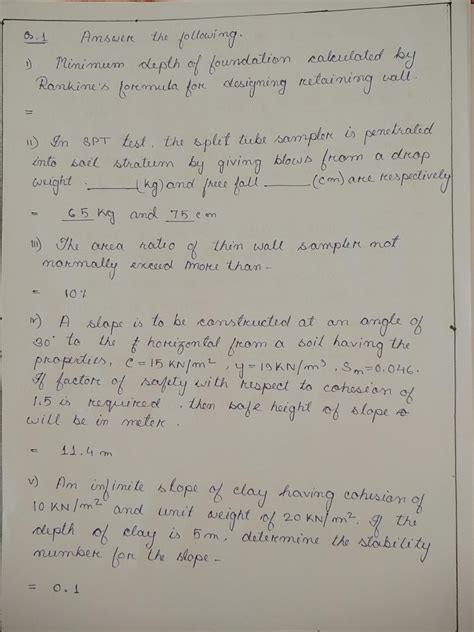 Q.1 Answer the following.
i) Minimum depth of foundation calculated by
Rankine's formula for designing retaining wall.
=
ii) In SPT test, the split tube sampler is penetrated
into soil stratum by giving blows from a drop
weight ______(kg) and free fall ______(cm) are respectively
= 65 Kg and 75 cm
iii) The area ratio of thin wall sampler not
normally exceed more than -
= 10%
iv) A slope is to be constructed at an angle of
30° to the horizontal from a soil having the
properties, C=15 KN/m², γ=19KN/m³, Sm=0.046.
If factor of safety with respect to cohesion of
1.5 is required, then safe height of slope
will be in meter.
= 11.4 m
v) An infinite slope of clay having cohesion of
10 KN/m² and unit weight of 20 KN/m². If the
depth of clay is 5m, determine the stability
number for the slope -
= 0.1